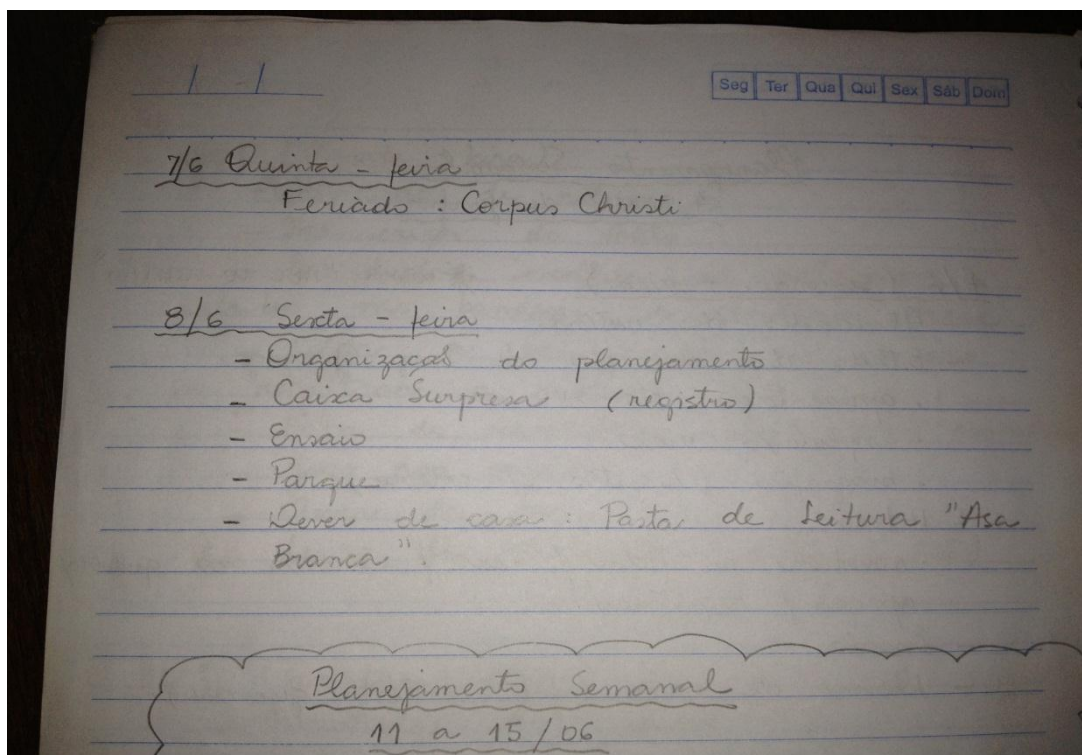 / /
Seg Ter Qua Qui Sex Sáb Dom
7/6 Quinta - feira
Feriado : Corpus Christi
8/6 Sexta - feira
- Organização do planejamento
- Caixa Surpresa (registro)
- Ensaio
- Parque
- Dever de casa : Pasta de Leitura "Asa
Branca".
Planejamento Semanal
11 a 15/06